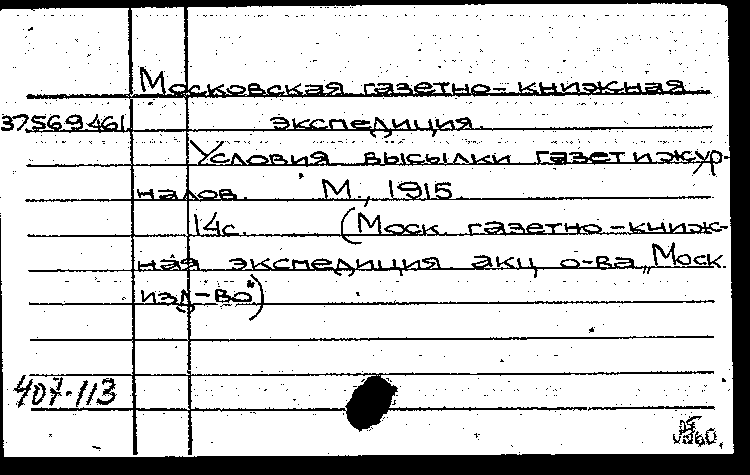 Московская газетно-книжная
37.56.9.461. экспедиция.
Условия высылки газет и жур-
налов. М., 1915.
14с. (Моск. газетно-книж-
ная экспедиция акц. о-ва „Моск.
изд-во")
407-113